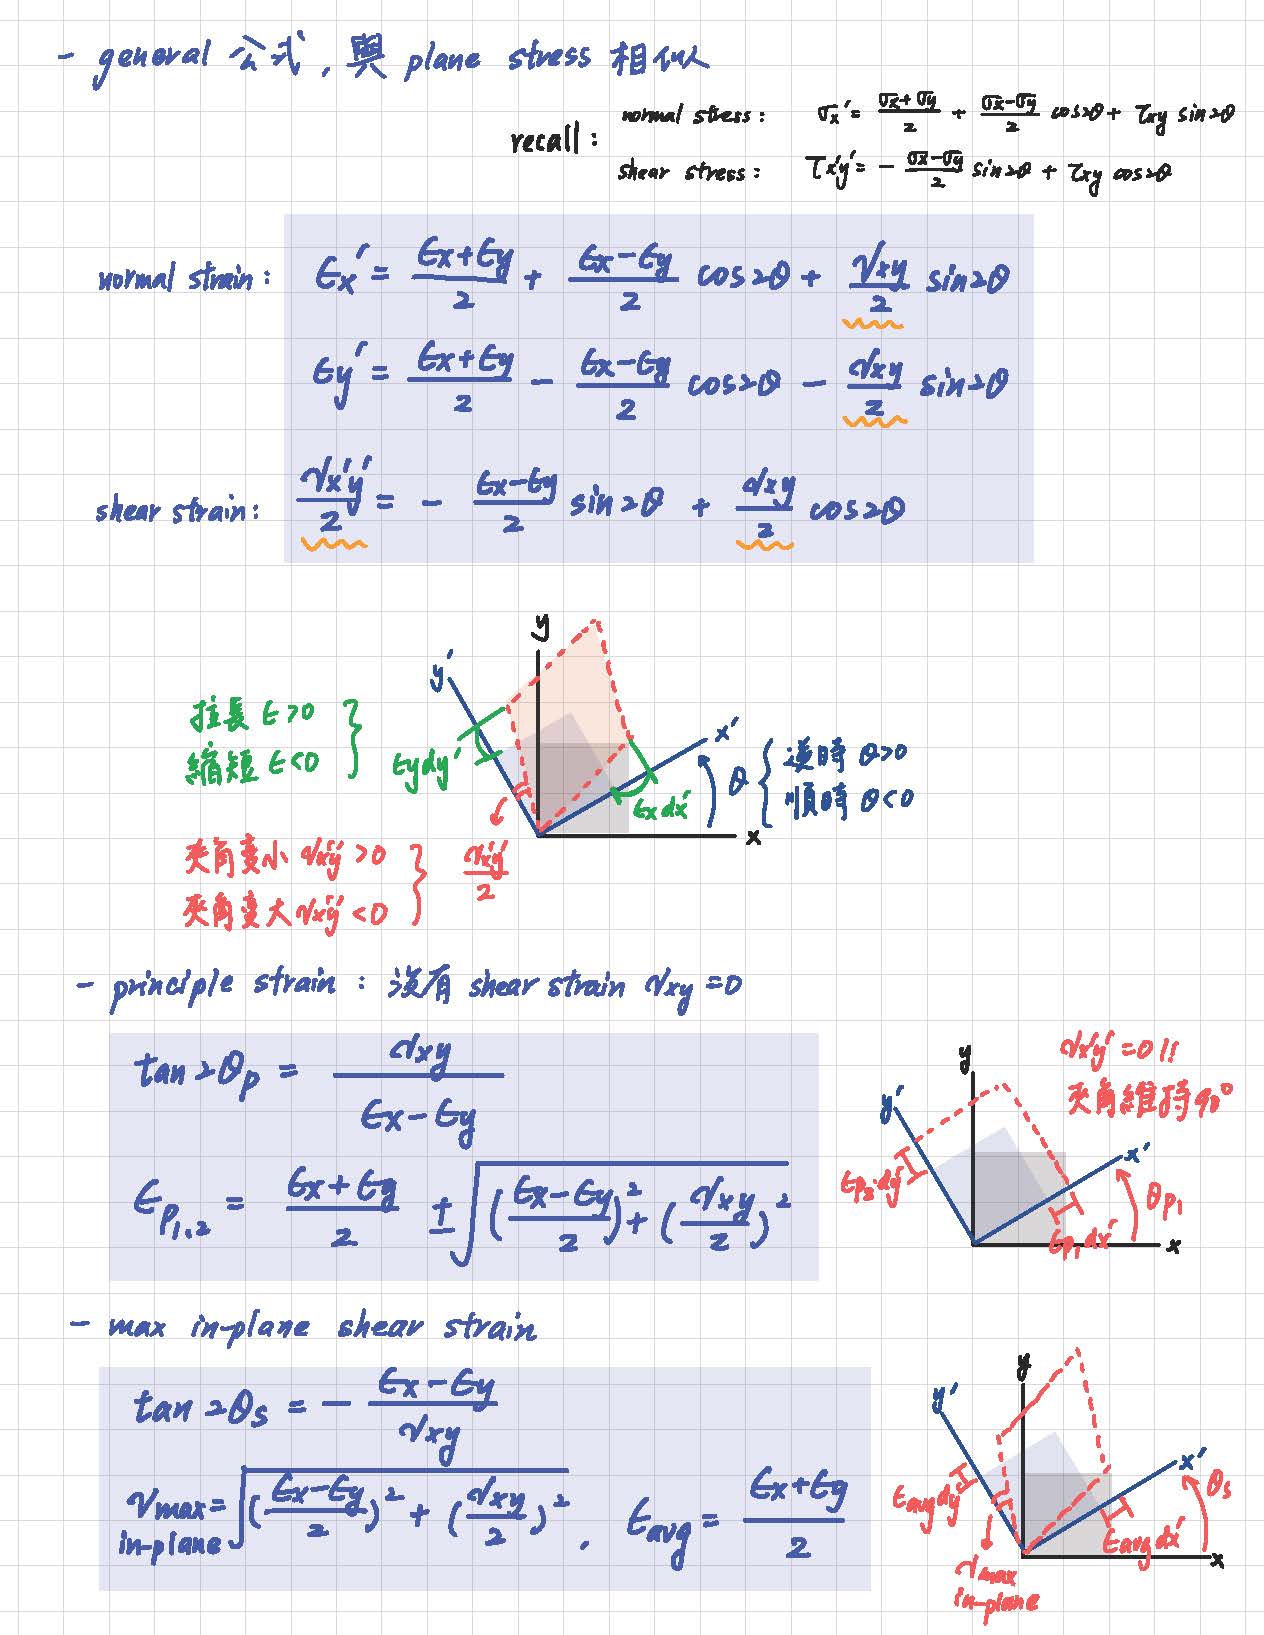 - general 公式, 與 plane stress 相似
recall:
normal stress: σx' = (σx+σy)/2 + (σx-σy)/2 cos2θ + τxy sin2θ
shear stress: τx'y' = - (σx-σy)/2 sin2θ + τxy cos2θ
normal strain: εx' = (εx+εy)/2 + (εx-εy)/2 cos2θ + γxy/2 sin2θ
εy' = (εx+εy)/2 - (εx-εy)/2 cos2θ - γxy/2 sin2θ
shear strain: γx'y'/2 = - (εx-εy)/2 sin2θ + γxy/2 cos2θ
y
y'
x'
x
θ
拉長 ε>0
縮短 ε<0
εy dy'
εx dx'
逆時 θ>0
順時 θ<0
夾角變小 γx'y' >0
夾角變大 γx'y' <0
γx'y'/2
- principle strain : 沒有 shear strain γxy =0
tan 2θp = γxy/(εx-εy)
εp1,2 = (εx+εy)/2 ± √(((εx-εy)/2)² + (γxy/2)²)
γx'y' =0!!
夾角維持90°
y
y'
x'
x
εp2·dy'
εp1 dx'
θp1
- max in-plane shear strain
tan 2θs = - (εx-εy)/γxy
γmax in-plane = √(((εx-εy)/2)² + (γxy/2)²) , εavg = (εx+εy)/2
y
y'
x'
x
θs
εavg dy'
εavg dx'
γmax
in-plane